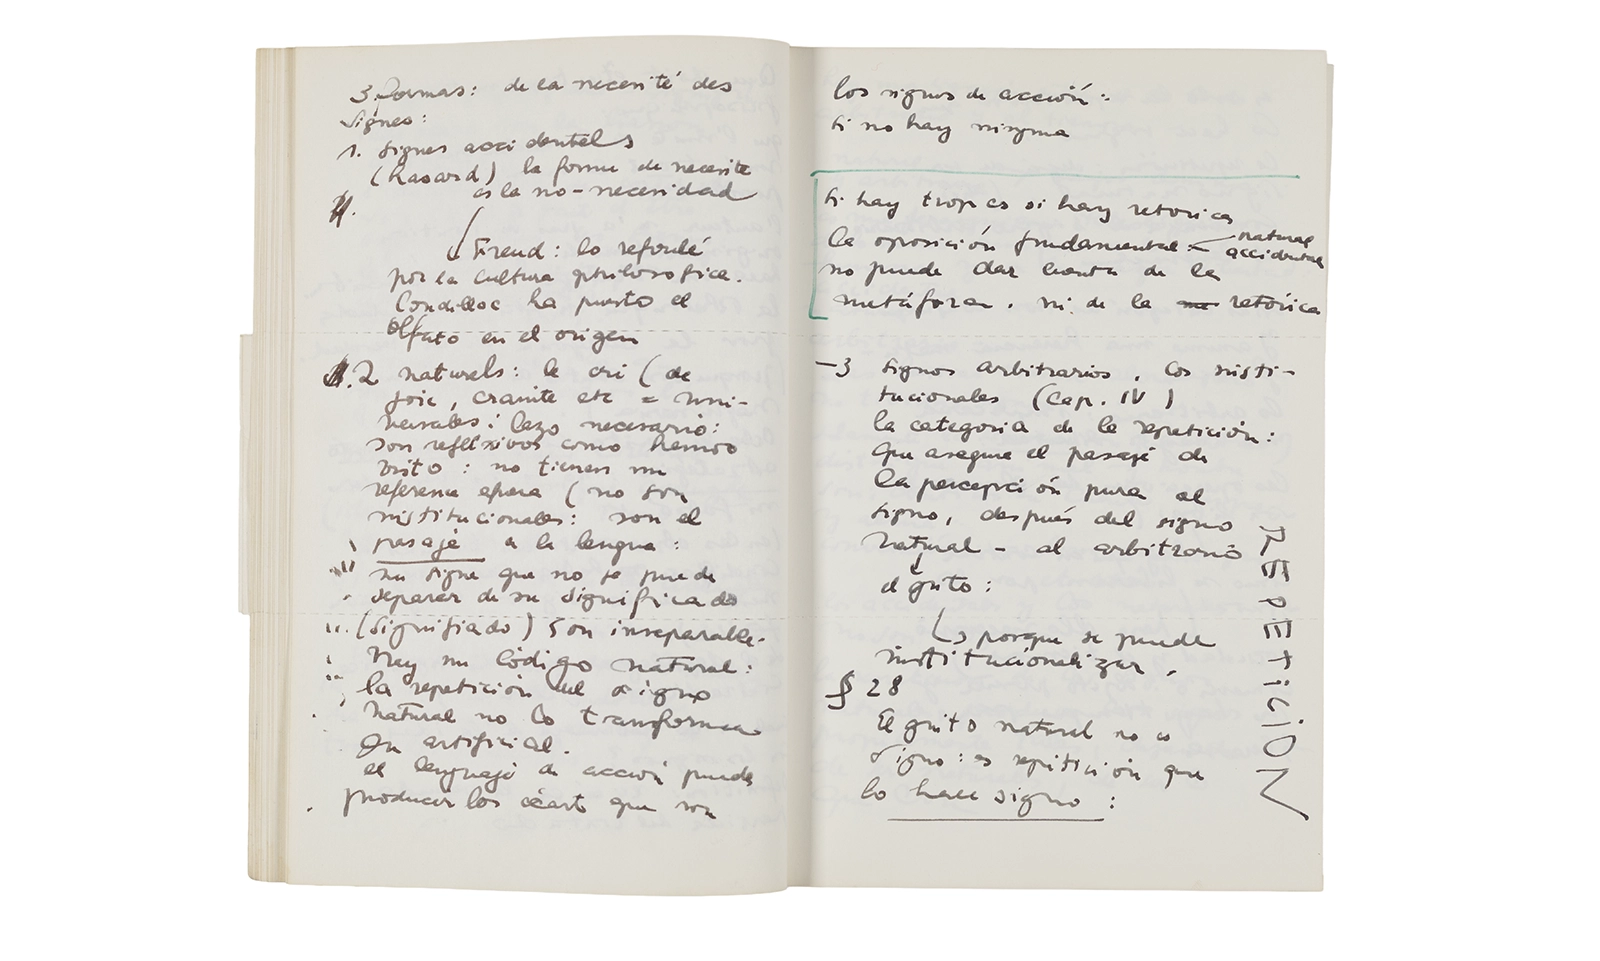 3 formas: de la necesité des
signes:
1. signes accidentels
(hasard) la forme de necesite
es la no-necesidad
Freud: lo refoulé
por la cultura philosofica.
Condillac ha puesto el
Olfato en el origen
2 naturels: le cri (de
joie, crainte etc = uni-
versales; lazo necesario:
son reflexivos como hemos
visto: no tienen un
(no son
institucionales: son el
pasaje a la lengua:
un signe que no se puede
separar de su significado
(signifiado) son inseparable.
Hay un código natural:
la repetición del signo
natural no lo transforma
en artificial.
el lenguaje de acción puede
producir los écarts que son
los signos de acción:
si no hay ninguna
si hay tropos si hay retoricas
la oposición fundamental natural
accidental
no puede dar cuenta de la
metáfora. ni de la retórica
-3 signos arbitrarios, los insti-
tucionales (Cap. IV)
la categoria de la repetición:
que asegure el pasaje de
la percepción pura al
signo, después del signo
natural - al arbitrario
el grito:
porque se puede
institucionalizar.
§ 28
El grito natural no es
signo: es repitición que
lo hace signo:
REPEticiON